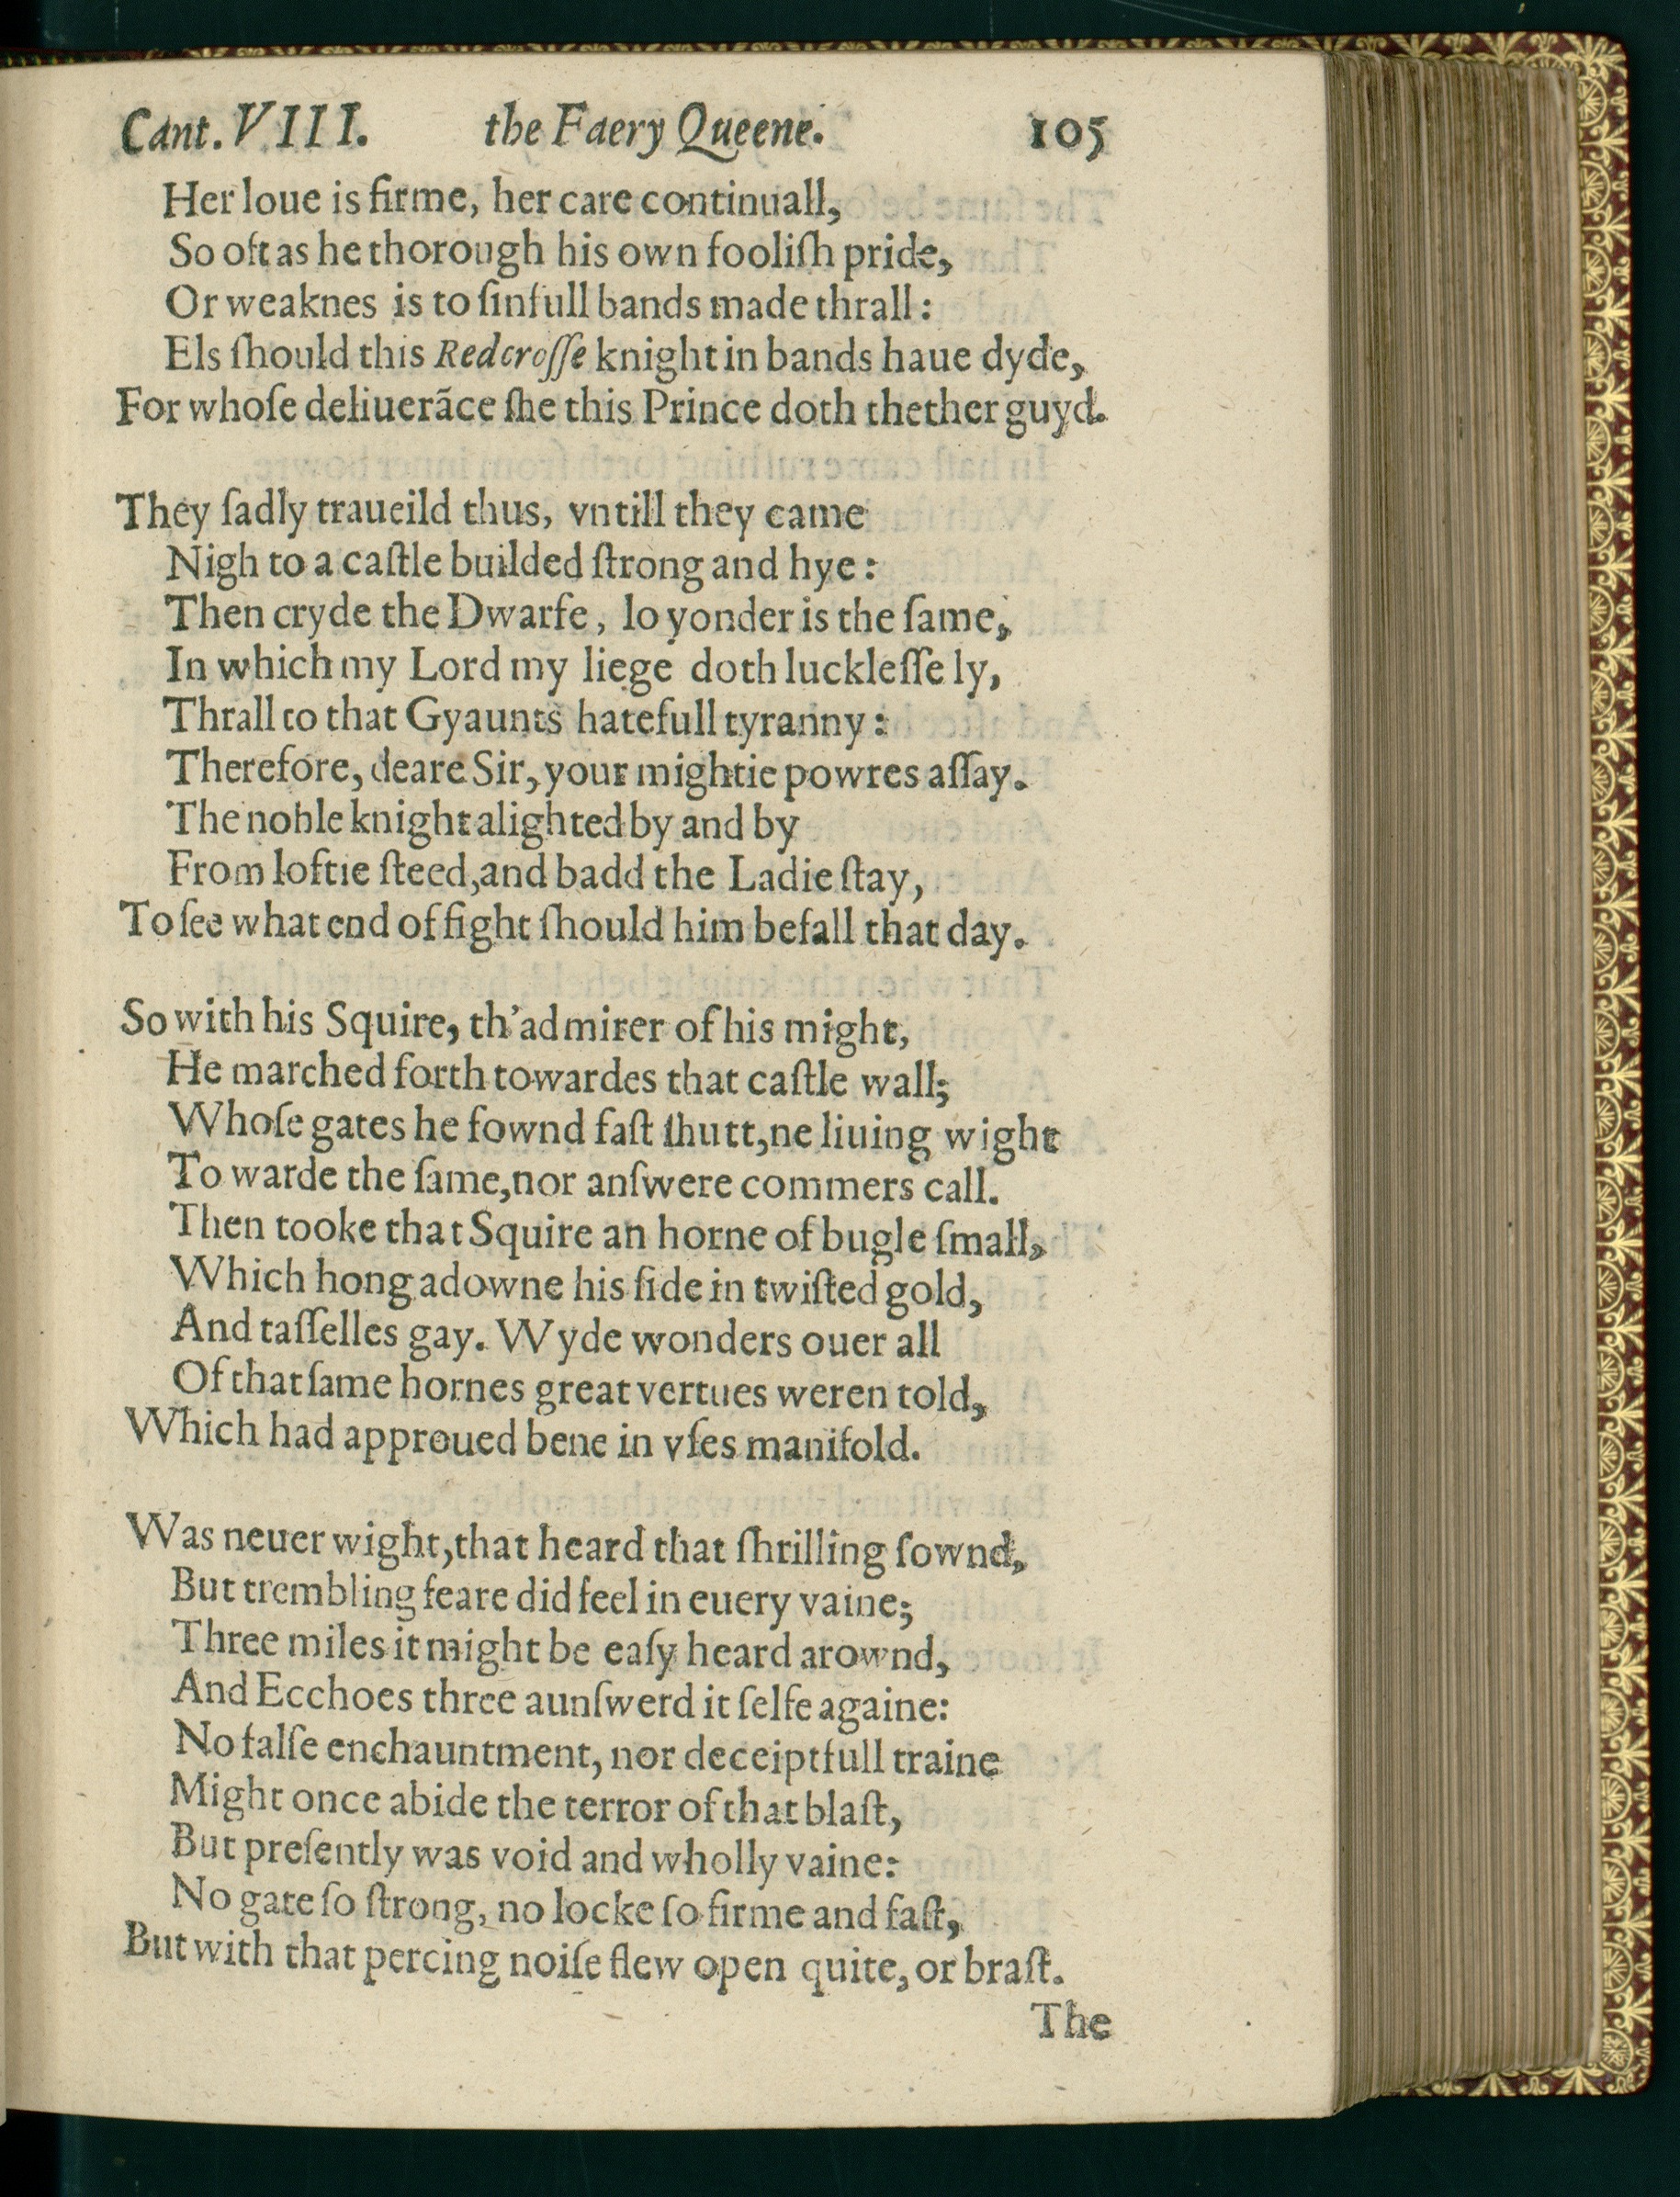 Cant. VIII. the Faery Queene. 105
Her loue is firme, her care continuall,
So oft as he thorough his own fooliſh pride,
Or weaknes is to ſinfull bands made thrall:
Els ſhould this Redcroſſe knight in bands haue dyde,
For whoſe deliuerãce ſhe this Prince doth thether guyd.
They ſadly traueild thus, vntill they came
Nigh to a caſtle builded ſtrong and hye:
Then cryde the Dwarfe, lo yonder is the ſame,
In which my Lord my liege doth luckleſſe ly,
Thrall to that Gyaunts hatefull tyranny:
Therefore, deare Sir, your mightie powres aſſay.
The noble knight alighted by and by
From loftie ſteed, and badd the Ladie ſtay,
To ſee what end of fight ſhould him befall that day.
So with his Squire, th'admirer of his might,
He marched forth towardes that caſtle wall;
Whoſe gates he fownd faſt ſhutt, ne liuing wight
To warde the ſame, nor anſwere commers call.
Then tooke that Squire an horne of bugle ſmall,
Which hong adowne his ſide in twiſted gold,
And taſſelles gay. Wyde wonders ouer all
Of that ſame hornes great vertues weren told,
Which had approued bene in vſes manifold.
Was neuer wight, that heard that ſhrilling ſownd,
But trembling feare did feel in euery vaine;
Three miles it might be eaſy heard arownd,
And Ecchoes three aunſwerd it ſelfe againe:
No falſe enchauntment, nor deceiptfull traine
Might once abide the terror of that blaſt,
But preſently was void and wholly vaine:
No gate ſo ſtrong, no locke ſo firme and faſt,
But with that percing noiſe flew open quite, or braſt.
The